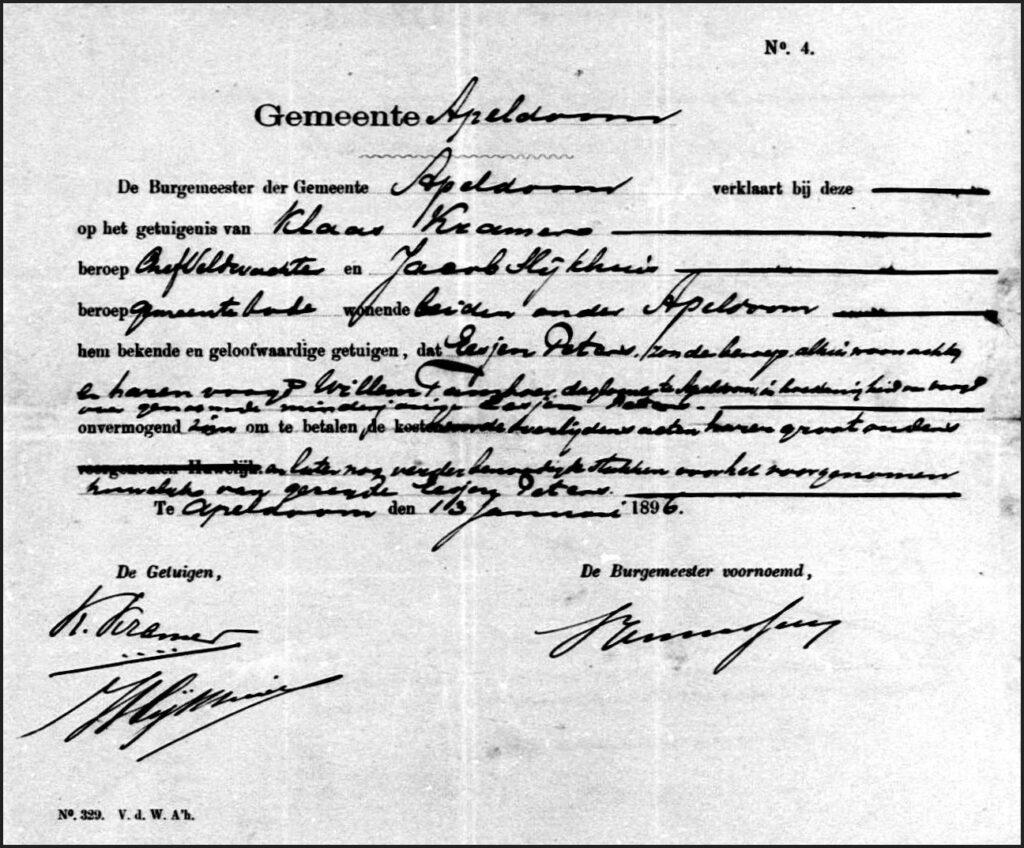 No. 4.
Gemeente Apeldoorn
De Burgemeester der Gemeente Apeldoorn verklaart bij deze
op het getuigenis van Klaas Kramers
beroep Chef Veldwachter en Jacob Slijkhuis
beroep gemeentebode wonende beiden onder Apeldoorn
hem bekende en geloofwaardige getuigen, dat Eesjen Peters, zonder beroep, alhier woonachtig
en haren voogd Willem
over genoemde minderjarige Eesjen Peters.
onvermogend zijn om te betalen, de kosten overlijdens acten haren groot ouders
voorgenomen Huwelijk. en later nog verder benoodigde stukken voor het voorgenomen
huwelijk van gezegde Eesjen Peters.
Te Apeldoorn den 13 Januari 1896.
De Getuigen,
De Burgemeester voornoemd,
K. Kramer
JSlijkhuis
No. 329. V. d. W. A'h.